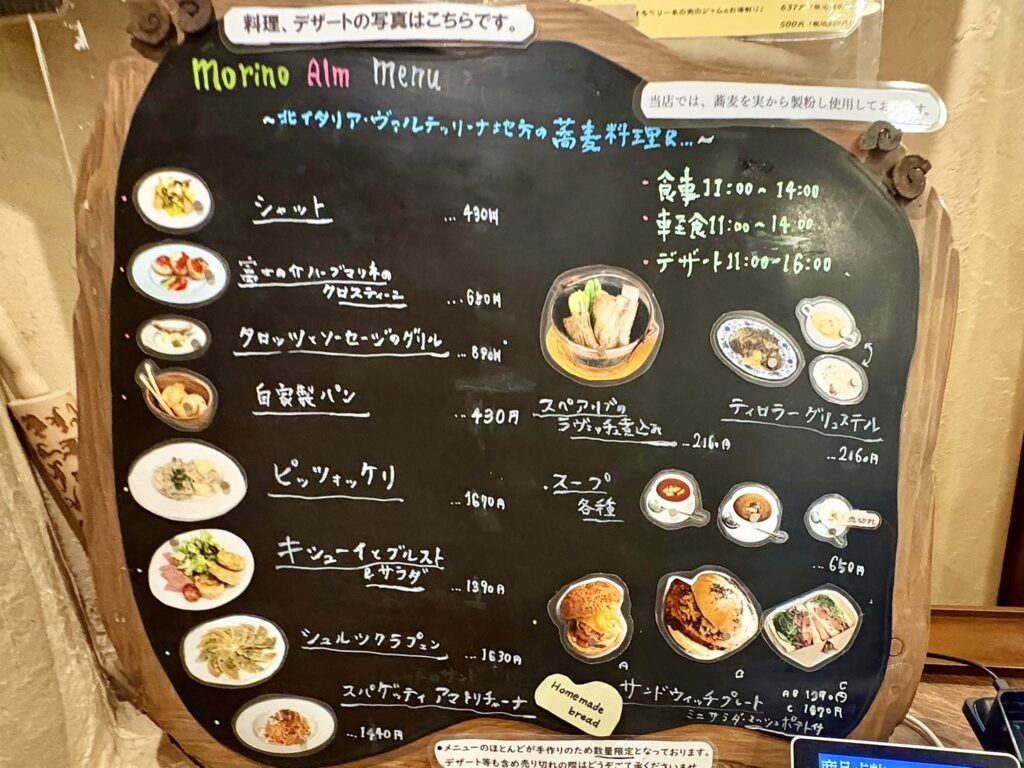 料理、デザートの写真はこちらです。
637円
500円
Morino Alm Menu
当店では、蕎麦を実から製粉し使用してお
~北イタリア・ヴァルテッリーナ地方の蕎麦料理&...~
・食事11:00~14:00
・軽食11:00~14:00
・デザート11:00~16:00
シャット ...430円
富士の介ハーブマリネの
クロスティーニ ...650円
タロッツとソーセージのグリル ...890円
自家製パン ...430円
ピッツォッケリ ...1670円
キシューイとブルスト
&サラダ ...1390円
シュルツクラプェン ...1630円
スパゲッティ アマトリチャーナ
...1440円
スペアリブの
ラヴェッチェ煮込み ...2160円
ティロラーグリュステル
...2160円
・スープ
各種
売切れ
...650円
A
B
C
Homemade
bread
サンドウィッチプレート
AB 1390円
C 1870円
ミニサラダ・スープ・ポテト付
●メニューのほとんどが手作りのため数量限定となっております。
デザート等も含め売り切れの際はどうぞご了承くださいませ